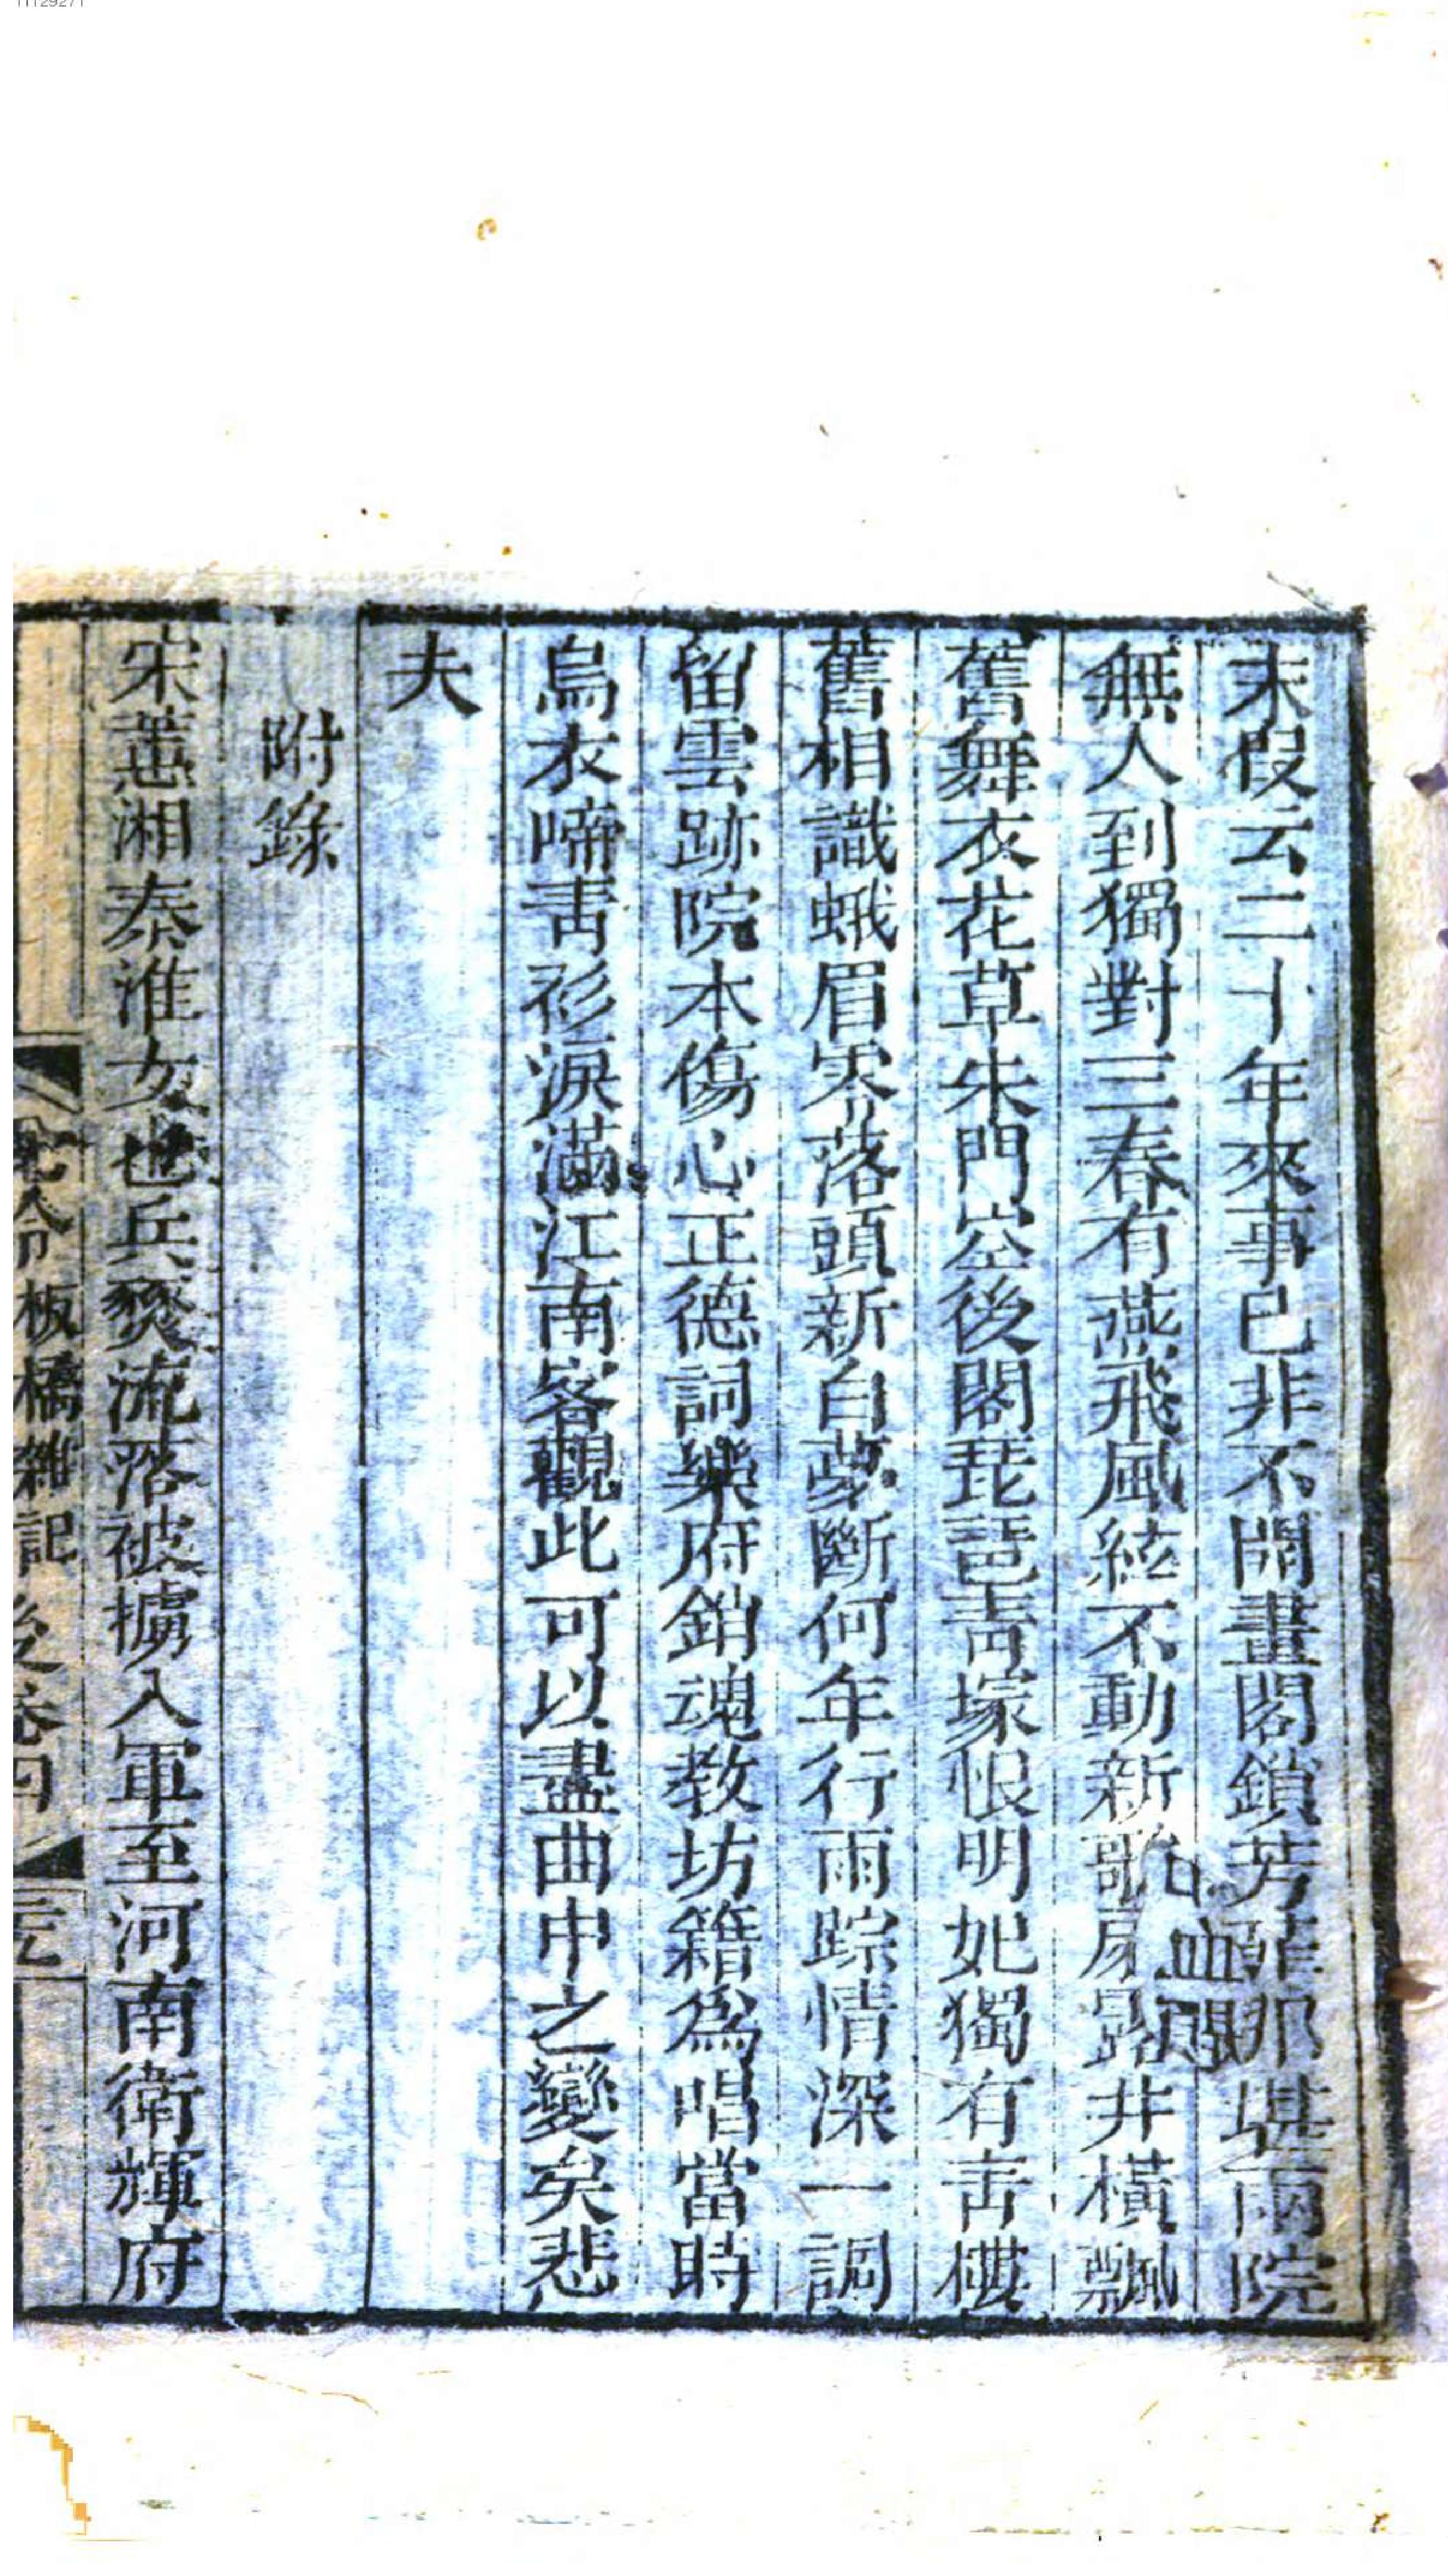 末段云二十年來事已非不開畫閣鎖芳菲那堪兩院
無人到獨對三春有燕飛風絃不動新歌扇露井橫飄
舊舞衣花草朱門空後閣琵琶青塚恨明妃獨有青樓
舊相識蛾眉零落頭新白夢斷何年行雨踪情深一調
留雲跡院本傷心正德詞樂府銷魂教坊籍爲唱當時
烏衣啼青衫淚滿江南客觀此可以盡曲中之變矣悲
夫
附錄
宋蕙湘秦淮女也兵燹流落被擄入軍至河南衛輝府
板橋雜記 後卷四
11129271